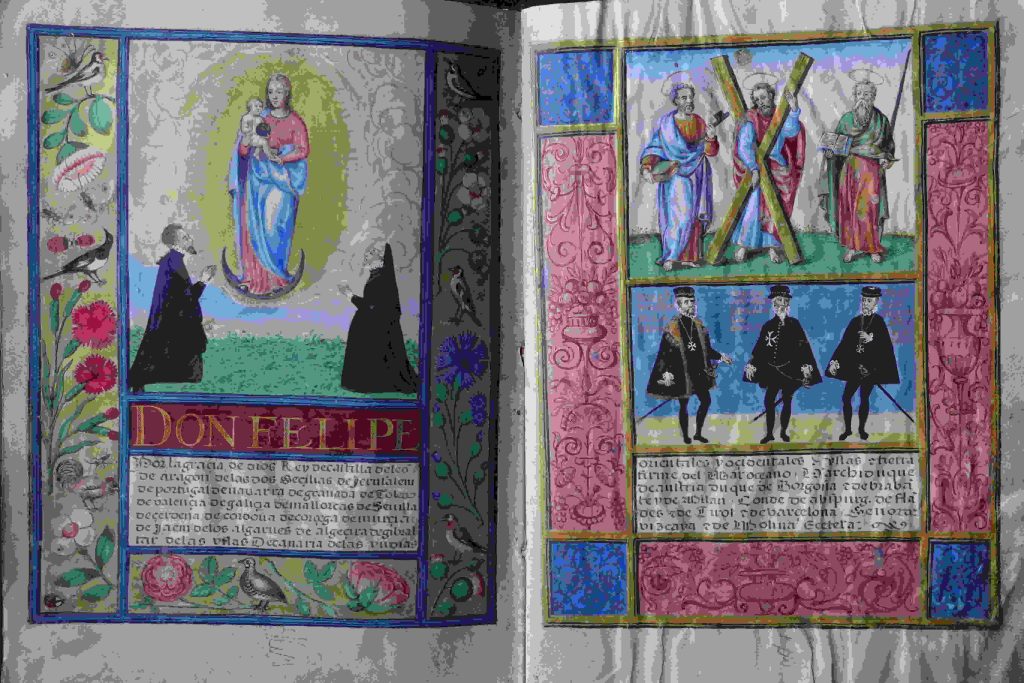 DON FELIPE
Por la gracia de dios Rey de castilla de leo
de aragon de las dos Secilias de Jerusalem
de portugal de navarra de granada de Toledo
de valençia de galiçia de mallorcas de Sevilla
de cerdeña de cordova de corçega de murçia
de jaem de los algarves de algezira de gibral
tar de las yslas De canaria de las yndias
orientales y ocidentales yslas tierra
firme del Mar oceano Archiduque
de austria Duque de Borgoña de braba
te y de Milan Conde de abspurg de fla
des de Tirol de barcelona Señor de
vizcaya de Molina Ecetera